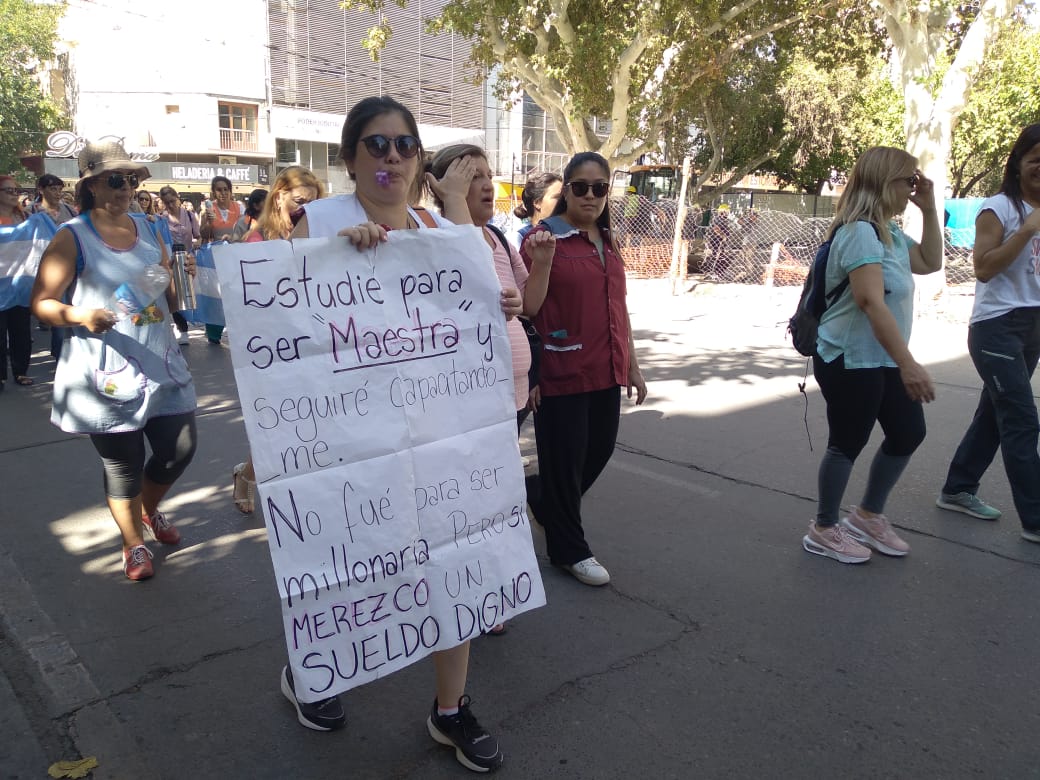 HELADERIA & CAFFÉ
Estudié para
ser "Maestra" y
seguiré capacitando_
_me.
No fué para ser
millonaria PERO SI
MEREZCO UN
SUELDO DIGNO